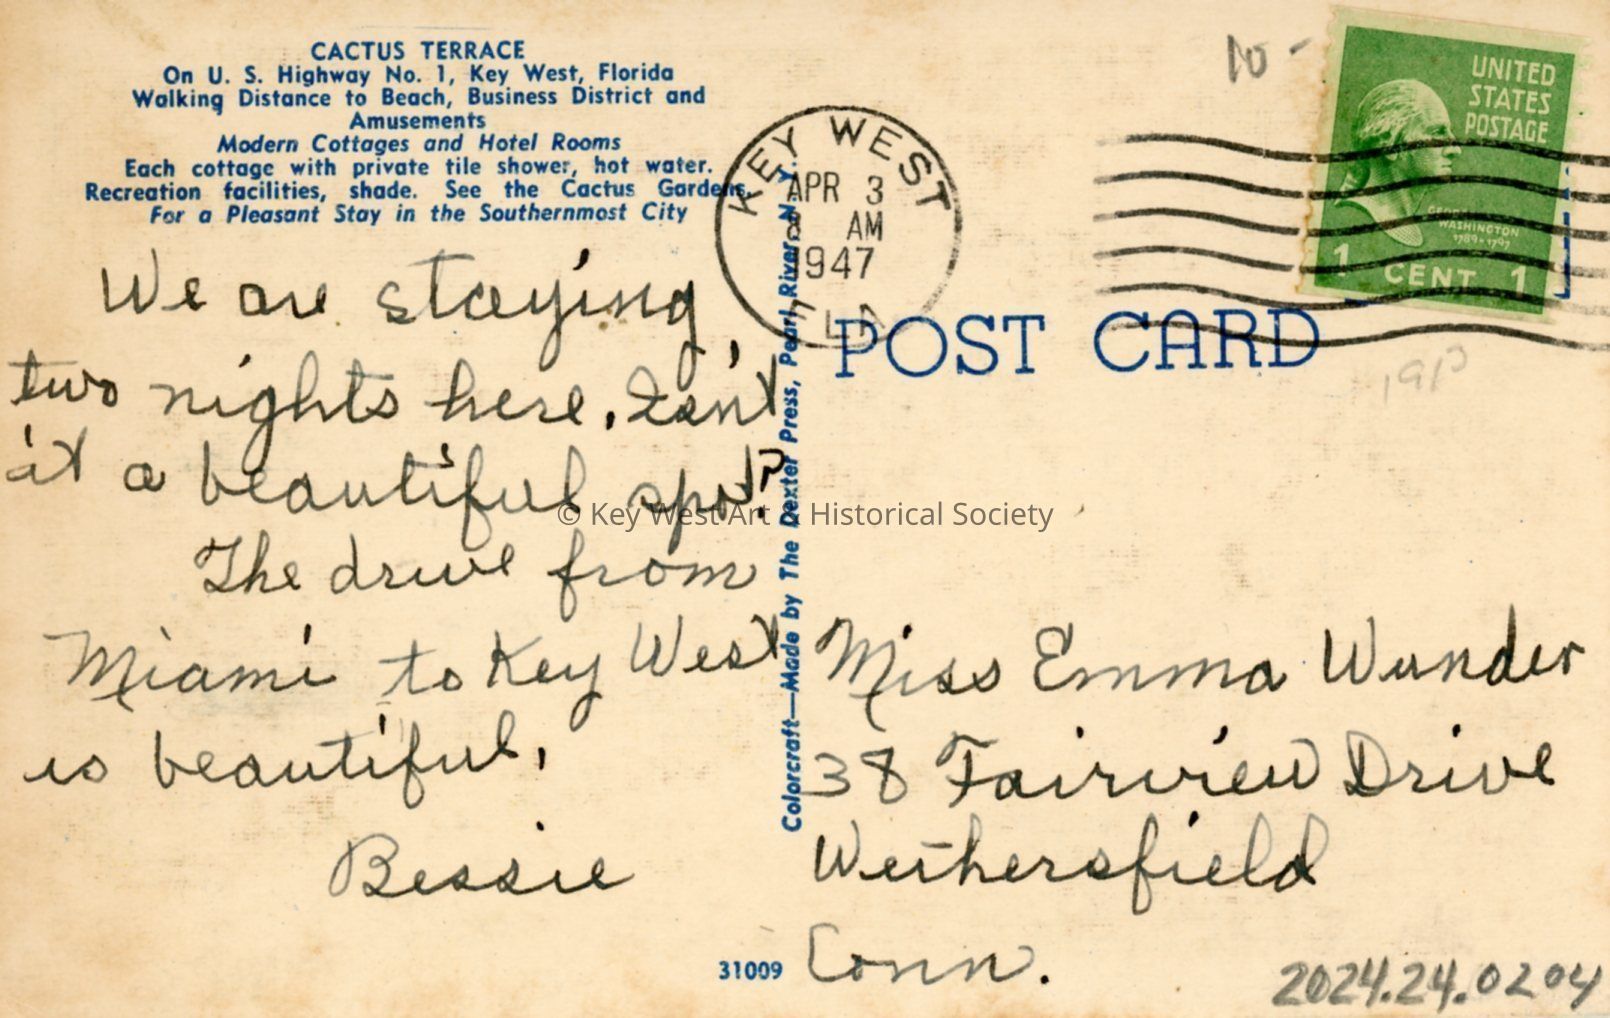 CACTUS TERRACE
On U. S. Highway No. 1, Key West, Florida
Walking Distance to Beach, Business District and
Amusements
Modern Cottages and Hotel Rooms
Each cottage with private tile shower, hot water.
Recreation facilities, shade. See the Cactus Gardens.
For a Pleasant Stay in the Southernmost City
We are staying
two nights here. Isn't
it a beautiful spot?
The drive from
Miami to Key West
is beautiful.
Bessie
Colorcraft—Made by The Dexter Press, Pearl River, N. Y.
31009
10-
KEY WEST
APR 3
AM
1947
FLA
UNITED
STATES
POSTAGE
GEORGE
WASHINGTON
1789-1797
1 CENT 1
POST CARD
Miss Emma Wunder
38 Fairview Drive
Wethersfield
Conn.
2024.24.0204
© Key West Art & Historical Society